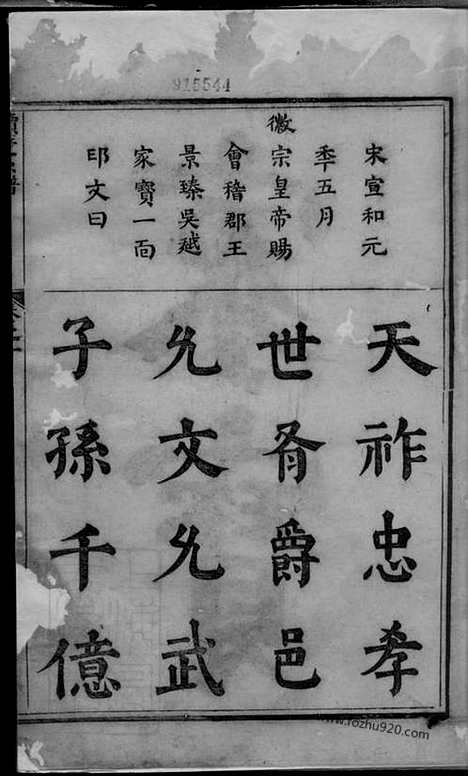 915544
宋宣和元
秊五月
徽宗皇帝賜
會稽郡王
景臻吳越
家寶一靣
印文曰
天祚忠孝
世胥爵邑
允文允武
子孫千億
www.rozhu920.com